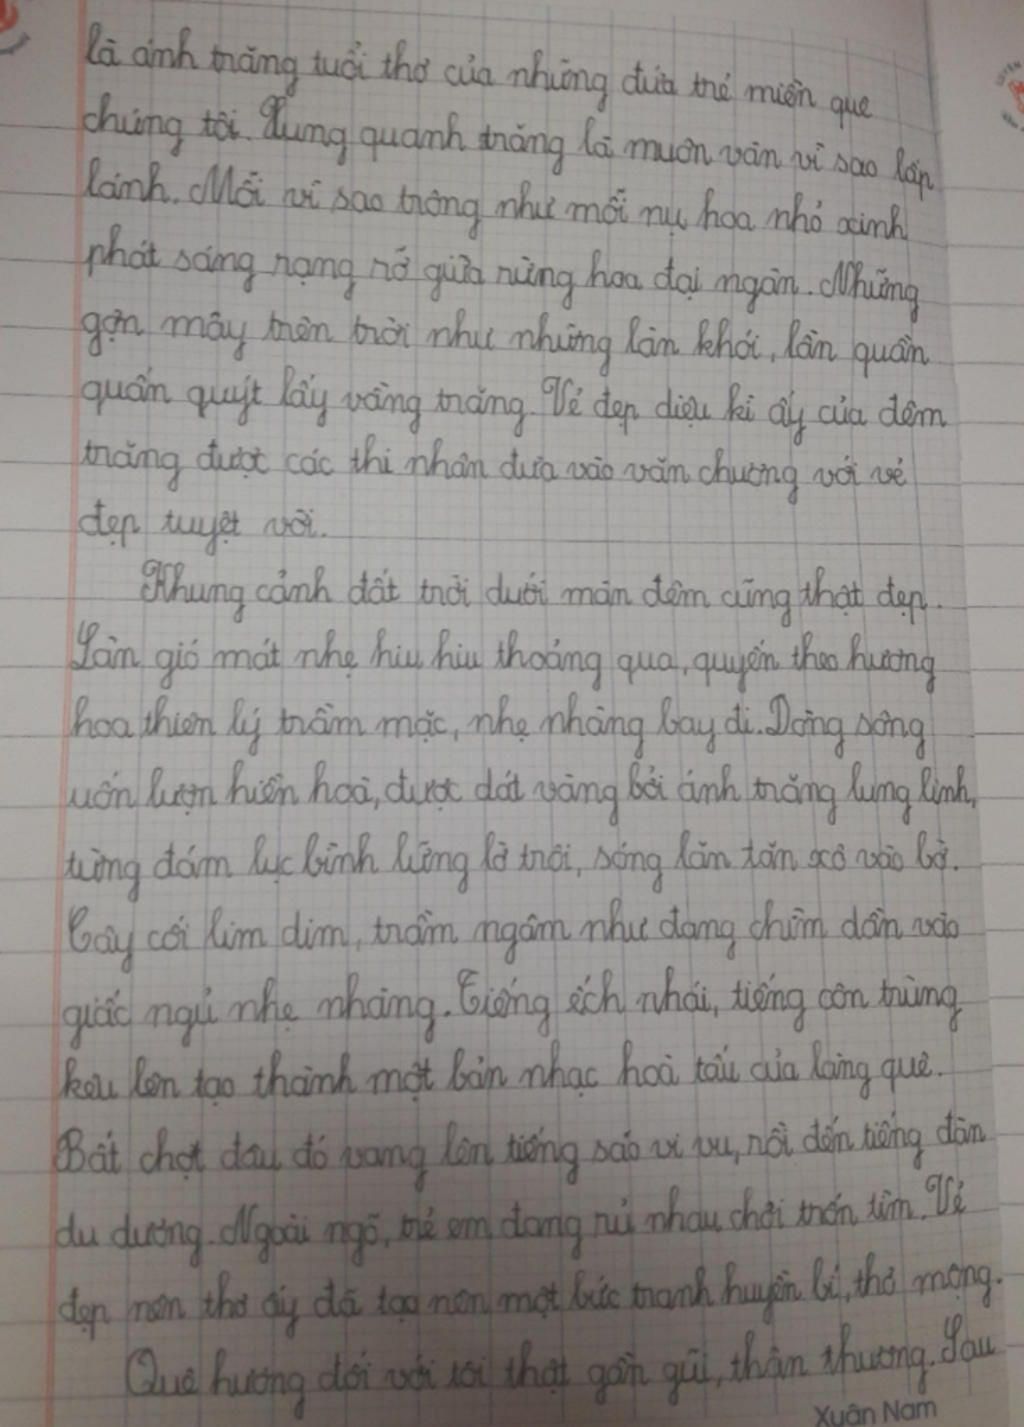 là ánh trăng tuổi thơ của những đứa trẻ miền quê
chúng tôi. Xung quanh trăng là muôn vàn vì sao lấp
lánh. Mỗi vì sao trông như mỗi nụ hoa nhỏ xinh
phát sáng rạng rỡ giữa rừng hoa đại ngàn. Những
gợn mây trên trời như những làn khói, lần quần
quấn quýt lấy vầng trăng. Vẻ đẹp diệu kì ấy của đêm
trăng được các thi nhân đưa vào văn chương với vẻ
đẹp tuyệt vời.
Khung cảnh đất trời dưới màn đêm cũng thật đẹp.
Làn gió mát nhẹ hiu hiu thoảng qua, quyến theo hương
hoa thiên lý trầm mặc, nhẹ nhàng bay đi. Dòng sông
uốn lượn hiền hoà, được dát vàng bởi ánh trăng lung linh,
từng đám lục bình lững lờ trôi, sóng lăn tăn xô vào bờ.
Cây cối lim dim, trầm ngâm như đang chìm dần vào
giấc ngủ nhẹ nhàng. Tiếng ếch nhái, tiếng côn trùng
kêu lên tạo thành một bản nhạc hoà tấu của làng quê.
Bất chợt đâu đó vang lên tiếng sáo vi vu, rồi đến tiếng đàn
du dương. Ngoài ngõ, trẻ em đang rủ nhau chơi trốn tìm. Vẻ
đẹp nên thơ ấy đã tạo nên một bức tranh huyền bí, thơ mộng.
Quê hương đối với tôi thật gần gũi, thân thương. Sau
Xuân Nam